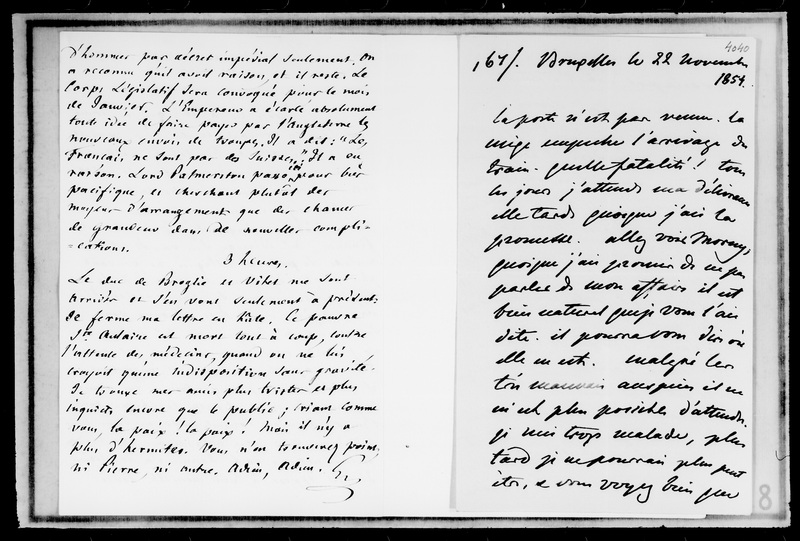 d'hommes par décret impérial seulement. On
a reconnu qu'il avait raison, et il reste. Le
Corps Législatif sera convoqué pour le mois
de Janvier. L'Empereur a écarté absolument
toute idée de faire payer par l'Angleterre les
nouveaux envois de troupes. Il a dit: "Les
Français ne sont pas des Suisses." Il a eu
raison. Lord Palmerston passe ici pour bien
pacifique, et cherchant plutôt des
moyens d'arrangement que des chances
de grandeur dans de nouvelles compli-
=cations.
3 heures.
Le duc de Broglie et Vitet me sont
arrivés et s'en vont seulement à présent.
Je ferme ma lettre en hâte. Ce pauvre
Ste Aulaire est mort tout à coup, contre
l'attente des médecins, quand on ne lui
croyait qu'une indisposition sans gravité.
Je trouve mes amis plus tristes et plus
inquiets encore que le public; criant comme
vous, la paix! la paix! Mais il n'y a
plus d'hermites. Vous n'en trouverez point,
ni Pierre, ni autre. Adieu, Adieu. G.
4040
167/. Bruxelles le 22 novembre
1854.
la poste n'est pas venue. la
neige empêche l'arrivage du
train. quelle fatalité! tous
les jours j'attends ma délivrance
elle tarde quoique j'aie la
promesse. allez voir Morny,
quoique j'aie promis de ne pas
parler de mon affaire il est
bien naturel que je vous l'aie
dite. il pourra vous dire où
elle en est. malgré les
très mauvais auspices il ne
m'est plus possible d'attendre.
je suis trop malade, plus
tard je ne pourrais plus peut
être, & vous voyez bien que
8